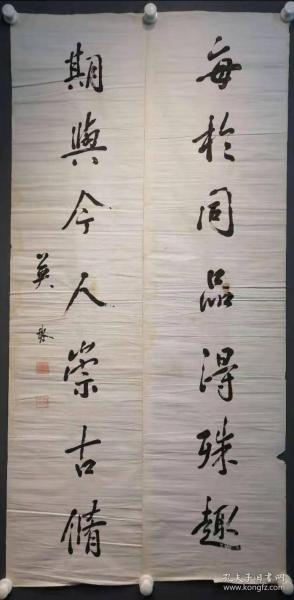 每於同品得殊趣
期與今人崇古脩
英
孔夫子旧书网
www.kongfz.com